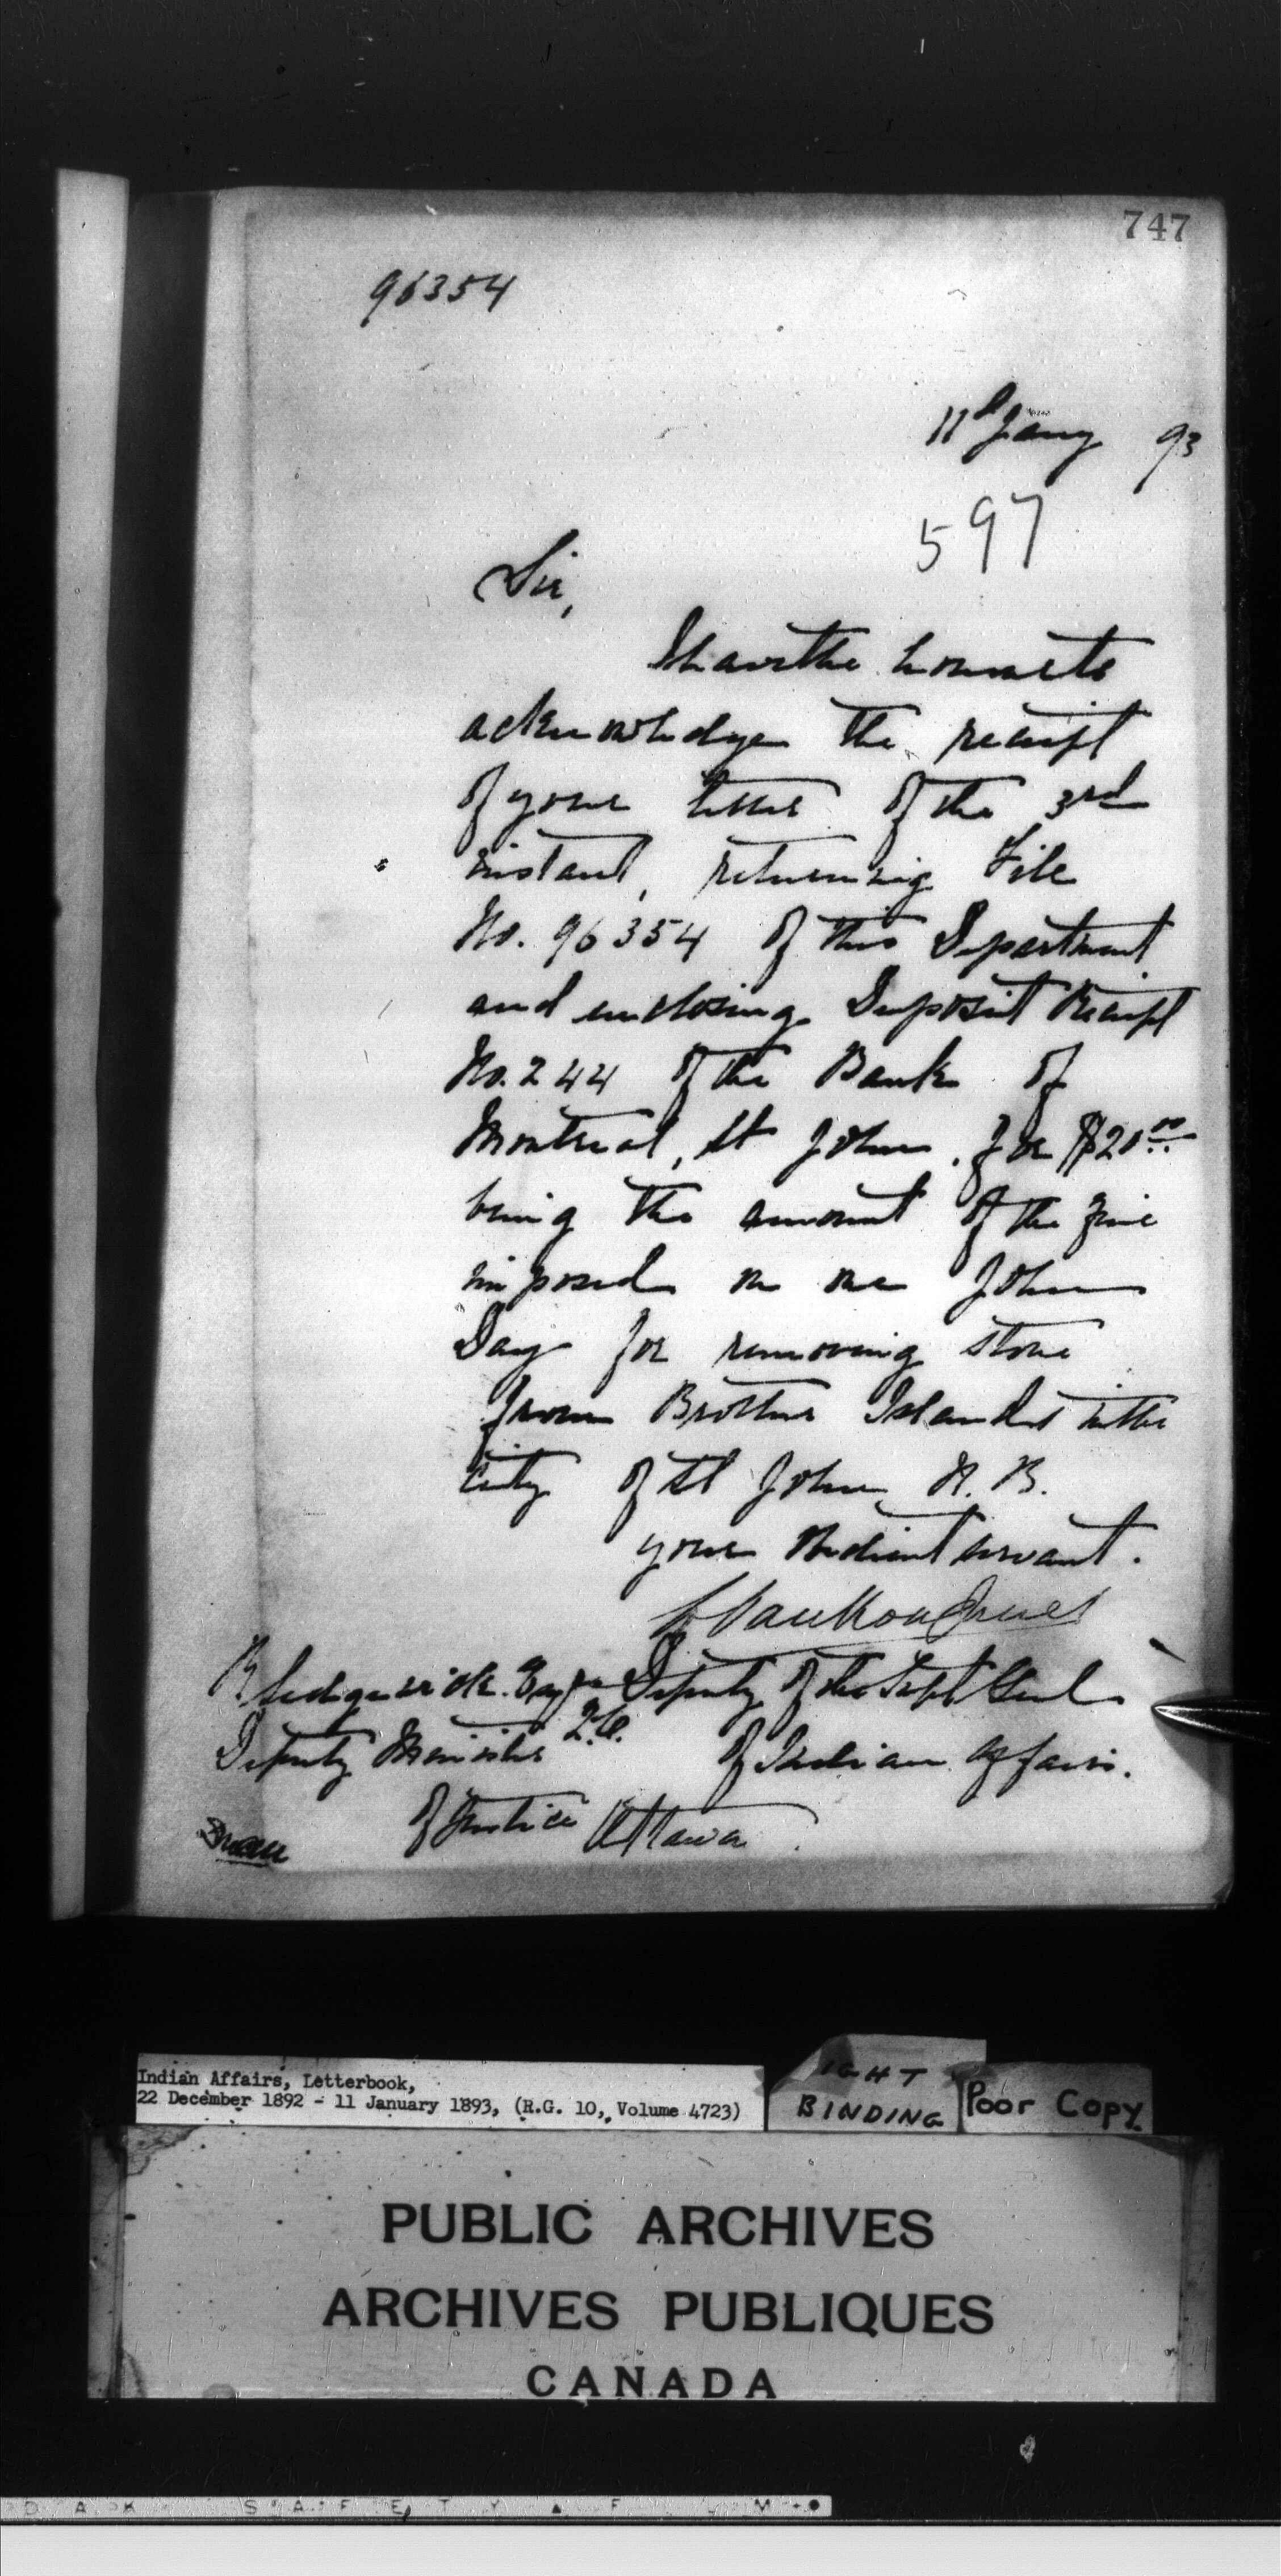 747
96354
11th Jany 93
597
Sir,
I have the honour to
acknowledge the receipt
of your letter of the 3rd
instant, returning File
No. 96354 of this Department
and enclosing Deposit Receipt
No. 244 of the Bank of
Montreal, St John, for $20.00
being the amount of the fine
imposed on one John
Day for removing stone
from Brothers Islands in the
City of St John N.B.
your obedient servant.
L Vankoughnet
R Sedgewick Esqre Deputy of the Supt Genl
Deputy Minister Q.C. of Indian Affairs.
of Justice Ottawa.
Indian Affairs, Letterbook,
22 December 1892 - 11 January 1893, (R.G. 10, Volume 4723)
IGHT
BINDING
Poor Copy
PUBLIC ARCHIVES
ARCHIVES PUBLIQUES
CANADA
SAFETY